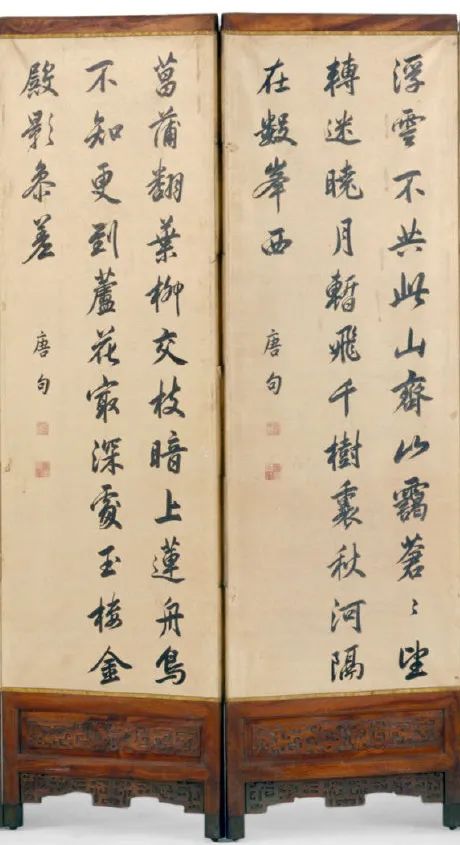 浮雲不共此山齊山靄蒼〻望
轉迷曉月暫飛千樹裏秋河隔
在數峯西
唐句
菖蒲翻葉柳交枝暗上蓮舟鳥
不知更到蘆花最深處玉樓金
殿影參差
唐句